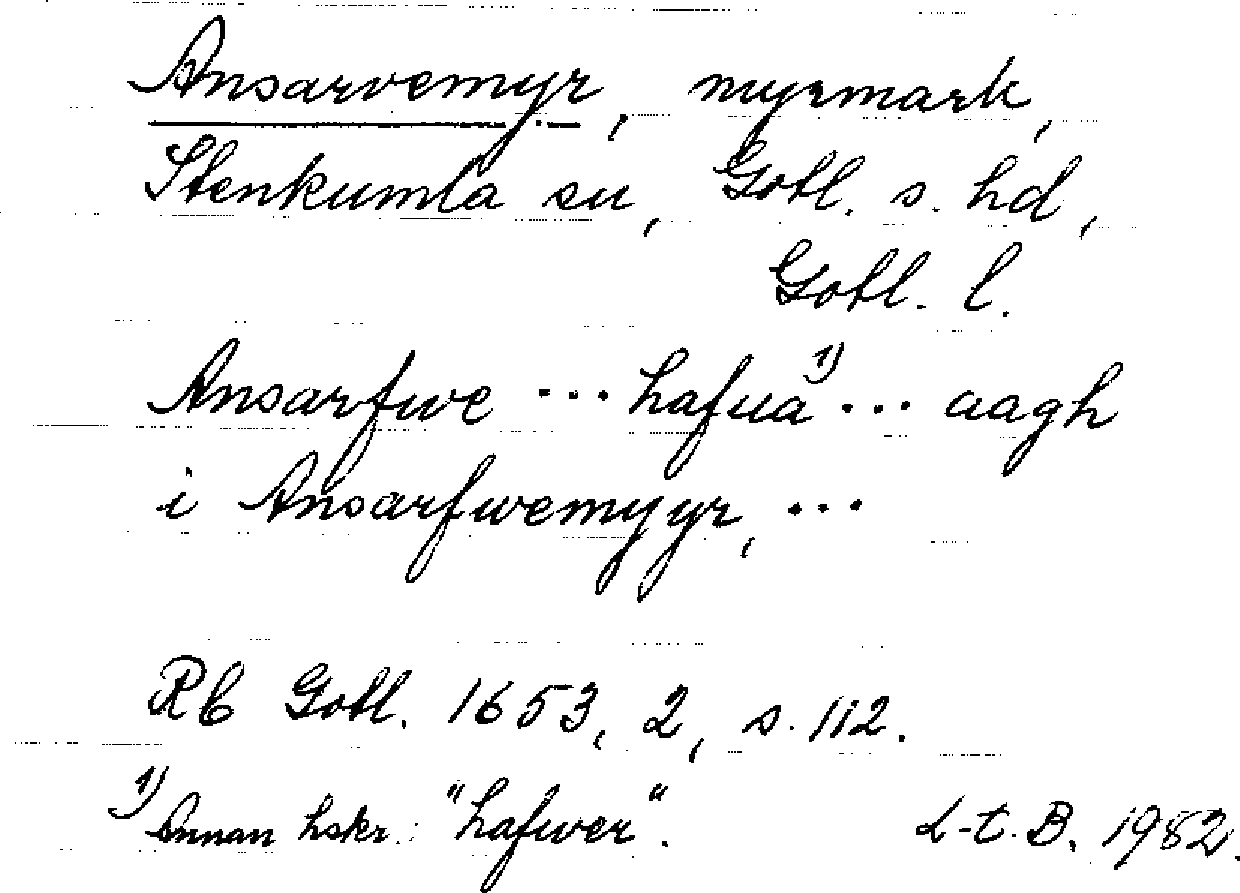 Ansarvemyr, myrmark,
Stenkumla su, Gotl. s. hd,
Gotl. l.
Ansarfwe ... hafua 1) ... aagh
i Ansarfwemyyr, ...
Rb Gotl. 1653, 2, s. 112.
1) Annan hskr: "hafwer".
L-t. B. 1982.